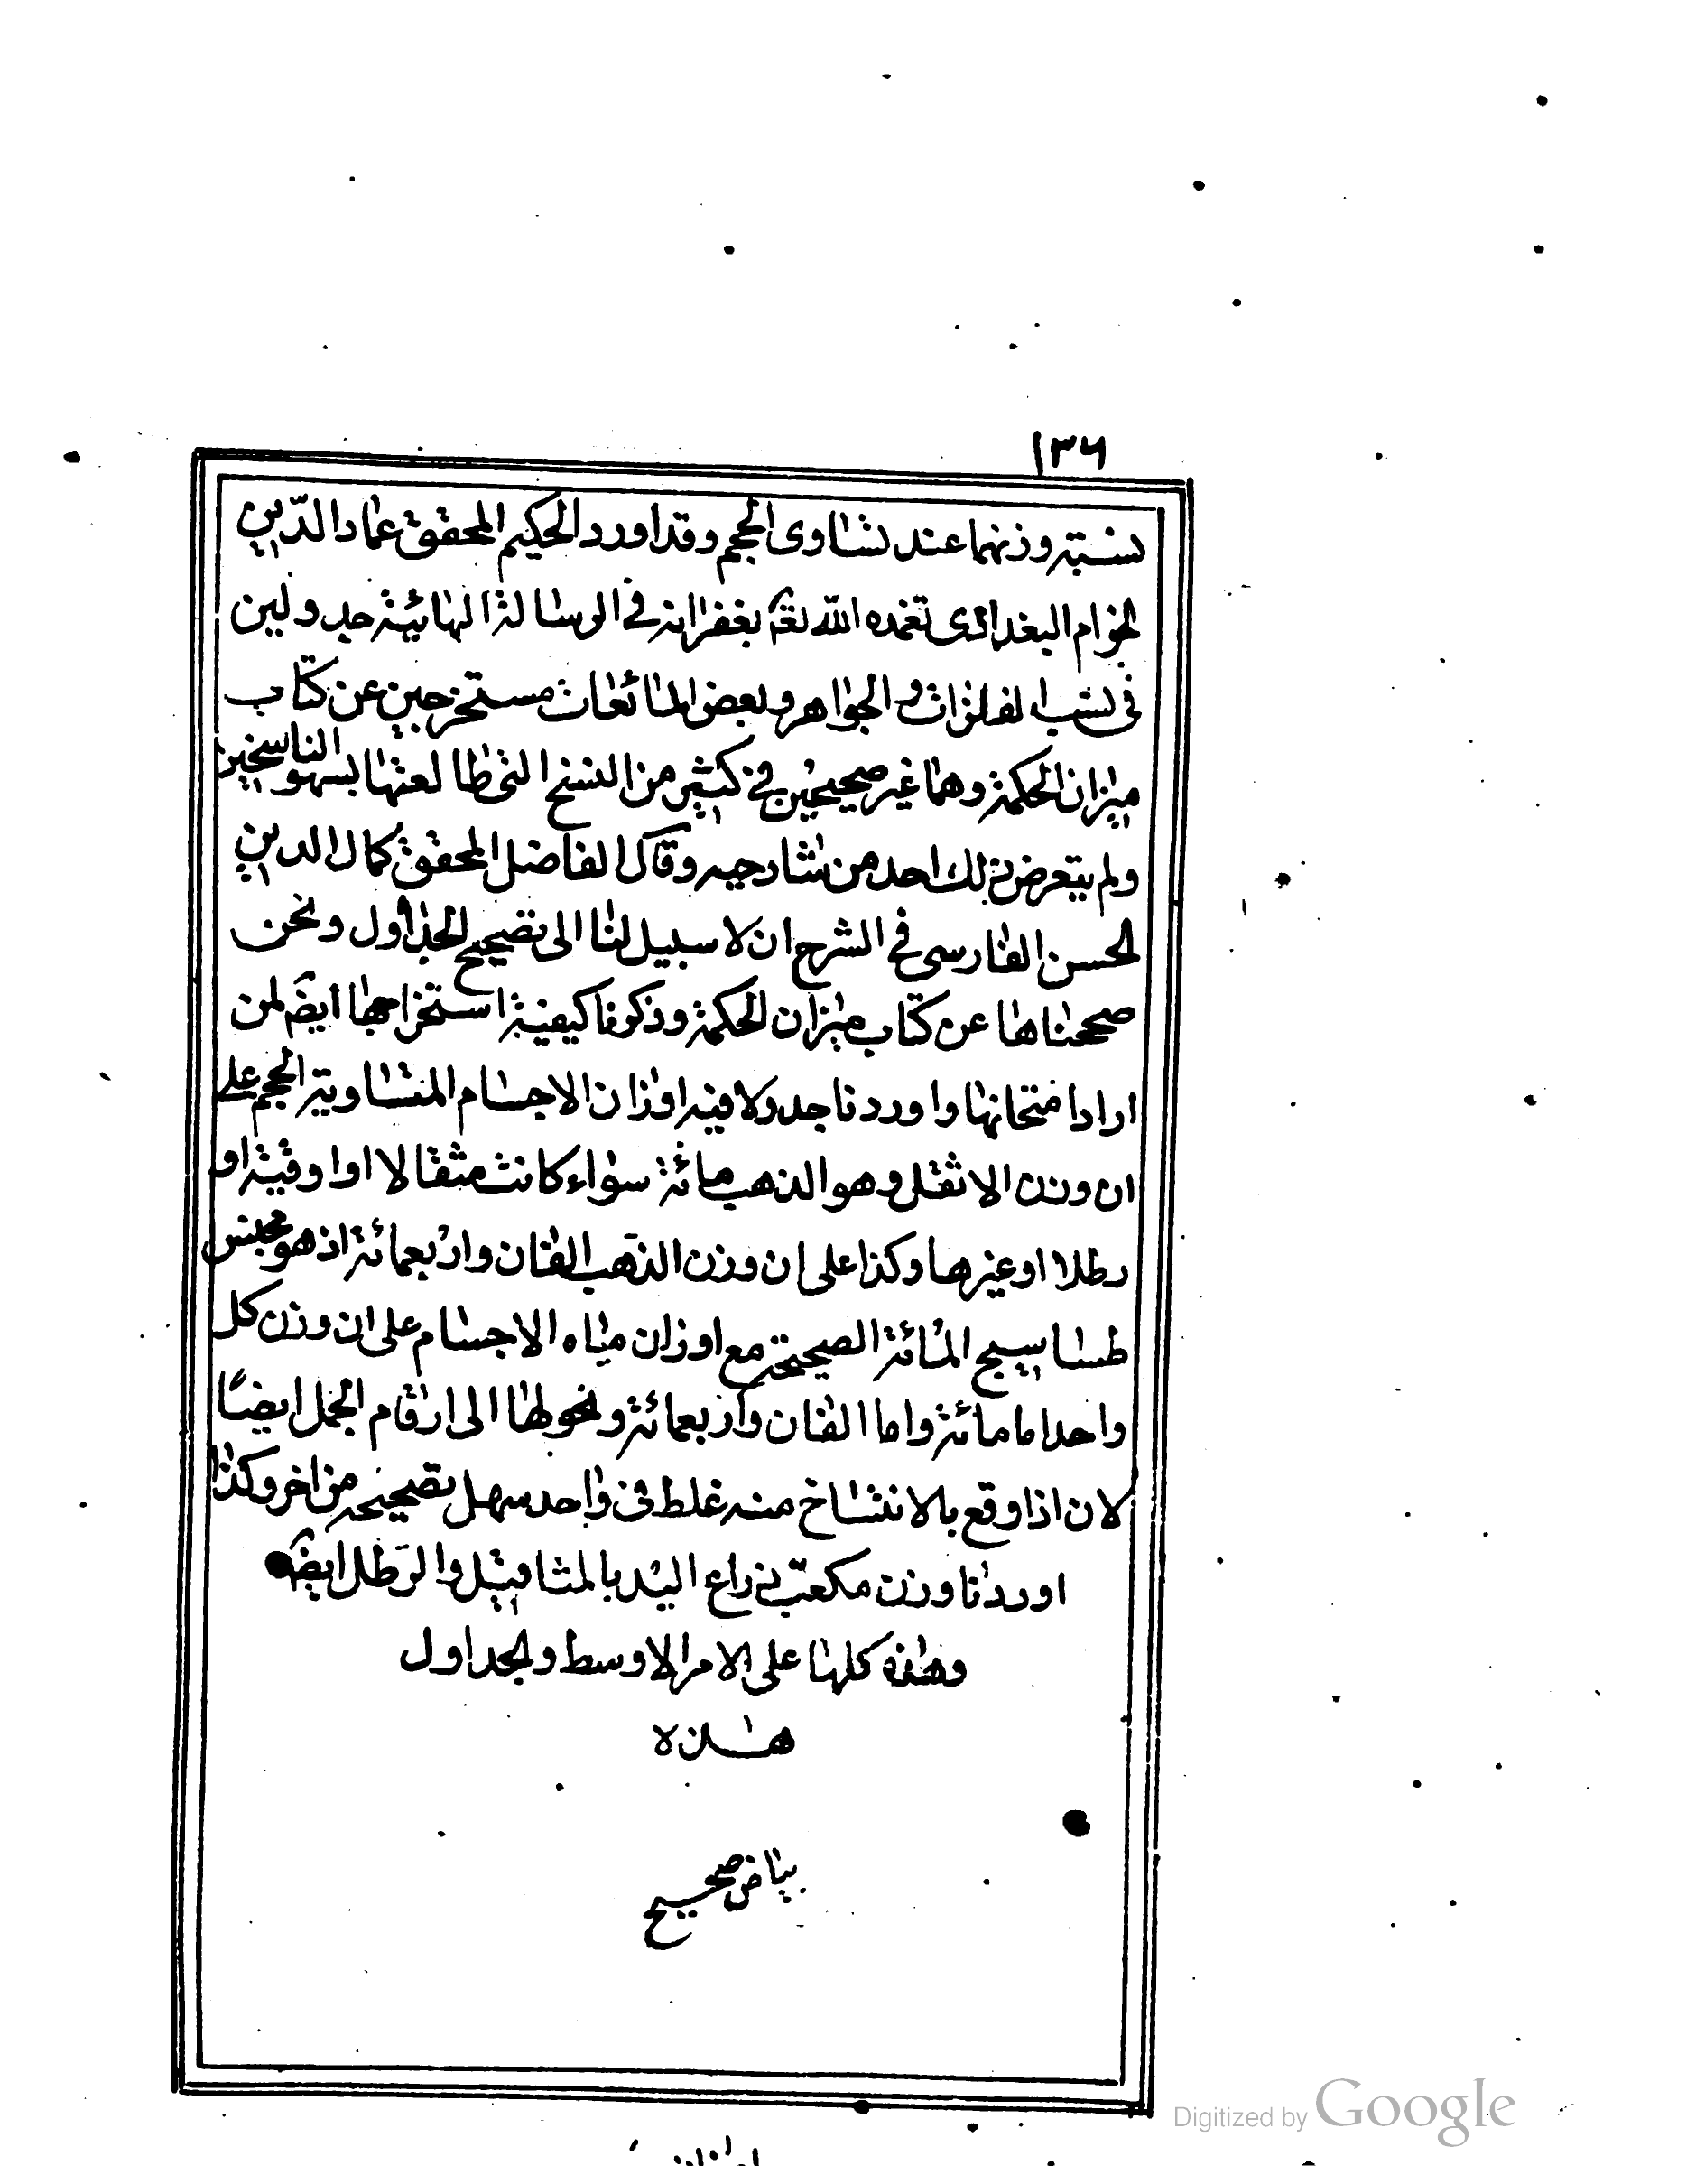 ١٣٦
نسبته وزنهما عند تساوى الحجم وقد اورد الحكيم المحقق عماد الدّين
الخوام البغدادى تغمده الله تعٰه بغفرانه فى الرسالة البهائية جدولين
فى نسب الفلزات والجواهر وبعض المائعات مستخرجين عن كتاب
ميزان الحكمة وهما غير صحيحين فى كثير من النسخ التى طالعتها بسهو الناسخين
ولم يتعرض لذلك احد من شارحيه وقال الفاضل المحقق كمال الدين
الحسن الفارسى فى الشرح ان لا سبيل لنا الى تصحيح الجداول ونحن
صححناها عن كتاب ميزان الحكمة وذكرنا كيفية استخراجها ايضه لمن
اراد امتحانها واوردنا جدولا فيه اوزان الاجسام المتساوية الحجم على
ان وزن الاثقل وهو الذهب مائة سواء كانت مثقالا او اوقية او
رطلا او غيرها وكذا على ان وزن الذهب الفان واربعمائة اذ هو مجنس
طسا سيج المائة الصحيحة مع اوزان مياه الاجسام على ان وزن كل
واحد اما مائة واما الفان واربعمائة ونحولها الى ارقام الجمل ايضًا
لان اذا وقع بالانتساخ منه غلط فى واحد سهل تصحيحه من اخر وكذا
اوردنا وزن مكعب ذراع اليد بالمثاقيل والرطل ايضه
وهذه كلها على الامر الاوسط والجداول
هذه
بياض صحيح
Digitized by Google